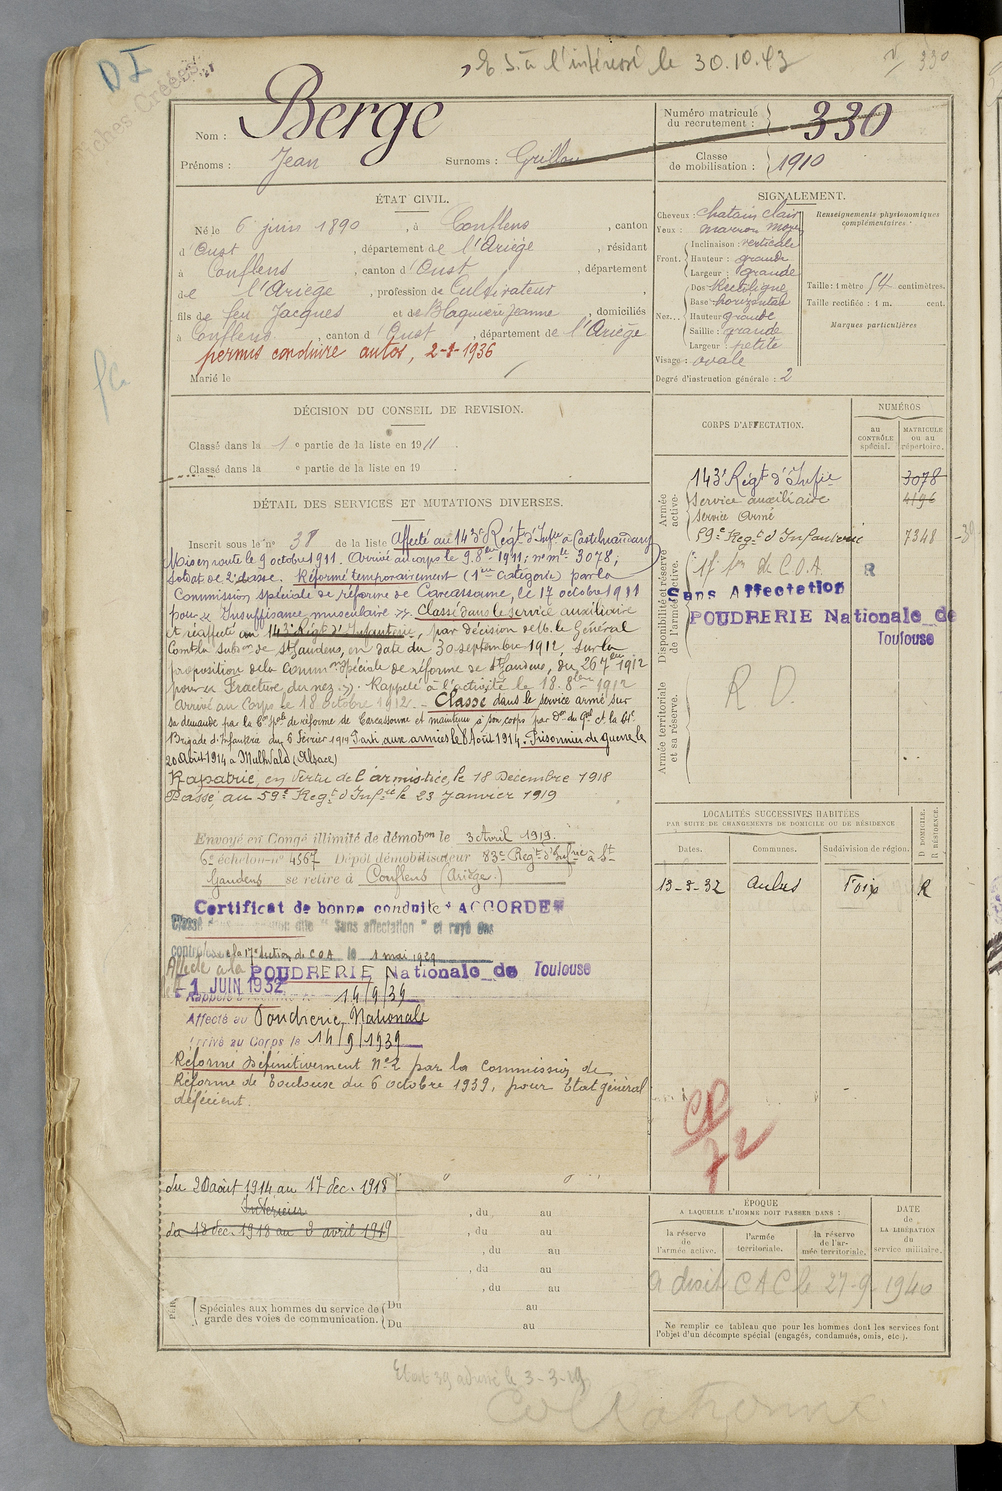 DI
Fiches Créées
E S. à l'intéressé le 30.10.43
330
Nom : Berge
Prénoms : Jean Surnoms : Grillou
Numéro matricule du recrutement : 330
Classe de mobilisation : 1910
ÉTAT CIVIL.
Né le 6 juin 1890, à Conflens, canton
d'Oust, département de l'Ariège, résidant
à Conflens, canton d'Oust, département
de l'Ariège, profession de Cultivateur,
fils de feu Jacques et de Blaquière Jeanne, domiciliés
à Conflens, canton d'Oust, département de l'Ariège
permis conduire autos, 2-8-1936
Marié le
SIGNALEMENT.
Cheveux : chatain clair
Yeux : marron moyen
Front. Inclinaison : verticale
Hauteur : grande
Largeur : grande
Nez... Dos : Rectiligne
Base : horizontal
Hauteur grande
Saillie : grande
Largeur : petite
Visage : ovale
Degré d'instruction générale : 2
Renseignements physionomiques complémentaires :
Taille : 1 mètre 54 centimètres.
Taille rectifiée : 1 m. cent.
Marques particulières
DÉCISION DU CONSEIL DE REVISION.
Classé dans la 1e partie de la liste en 1911.
Classé dans la e partie de la liste en 19 .
CORPS D'AFFECTATION.
NUMÉROS
au CONTRÔLE spécial.
MATRICULE ou au répertoire.
Armée active.
143e Régt d'Infie 3078
Service auxiliaire 4196
Service Armé
59e Regt d'Infanterie 7348
Disponibilité et réserve de l'armée active.
17e Son de C.O.A. R
Sans Affectation
POUDRERIE Nationale de
Toulouse
Armée territoriale et sa réserve.
R D.
DÉTAIL DES SERVICES ET MUTATIONS DIVERSES.
Inscrit sous le no 38 de la liste Affecté au 143e Régt d'Infie à Castelnaudary
Mis en route le 9 octobre 1911. Arrivé au corps le 9.8bre 1911; no mle 3078;
soldat de 2e classe. Réformé temporairement (1ère Catégorie) par la
Commission spéciale de réforme de Carcassonne, le 17 octobre 1911
pour « Insuffisance musculaire ». Classé dans le service auxiliaire
et réaffecté au 143e Régt d'Infanterie, par décision de M. le Général
Comt la Subon de St Gaudens, en date du 30 septembre 1912, sur la
proposition de la Common Spéciale de réforme de St Gaudens, du 26 7bre 1912
pour « Fracture du nez ». Rappelé à l'activité le 18. 8bre 1912
Arrivé au Corps le 18 octobre 1912. - Classé dans le service armé sur
sa demande par la Con Spale de réforme de Carcassonne et maintenu à son corps par Don du Gal Ct la 64e
Brigade d'Infanterie du 6 Février 1914 Parti aux armées le 8 Août 1914. Prisonnier de guerre le
20 Août 1914 à Mulhwald (Alsace)
Rapatrié, en vertu de l'armistice, le 18 Décembre 1918
Passé au 59e Regt d'Infrie le 23 Janvier 1919
Envoyé en Congé illimité de démobon le 3 Avril 1919.
6e échelon no 4567 Dépôt démobilisateur 83e Regt d'Infie à St-
Gaudens se retire à Conflens (Ariège.)
Certificat de bonne conduite "ACCORDÉ"
Classé "Sans affectation" et rayé des
contrôles de la 17e Section de C.O.A le 1 mai 1929
Affecté à la POUDRERIE Nationale de Toulouse
1 JUIN 1932
Rappelé à l'activité le 14/9/39
Affecté au Poudrerie Nationale
Arrivé au Corps le 14/9/1939
Réformé Définitivement No 2 par la Commission de
Réforme de Toulouse du 6 octobre 1939, pour Etat général
déficient.
LOCALITÉS SUCCESSIVES HABITÉES
PAR SUITE DE CHANGEMENTS DE DOMICILE OU DE RÉSIDENCE
Dates. Communes. Subdivision de région. D DOMICILE. R RÉSIDENCE.
13-3-32 Aulus Foix R
CP
72
du 20 août 1914 au 17 déc. 1918
Intérieur
du 18 déc. 1918 au 3 avril 1919
, du au
, du au
, du au
, du au
, du au
Spéciales aux hommes du service de garde des voies de communication.
Du au
Du au
ÉPOQUE
A LAQUELLE L'HOMME DOIT PASSER DANS :
la réserve de l'armée active.
l'armée territoriale.
la réserve de l'armée territoriale.
DATE de LA LIBÉRATION du service militaire.
a droit CAC le 27-9-1940
Ne remplir ce tableau que pour les hommes dont les services font
l'objet d'un décompte spécial (engagés, condamnés, omis, etc.).
Etat 39 adressé le 3-3-